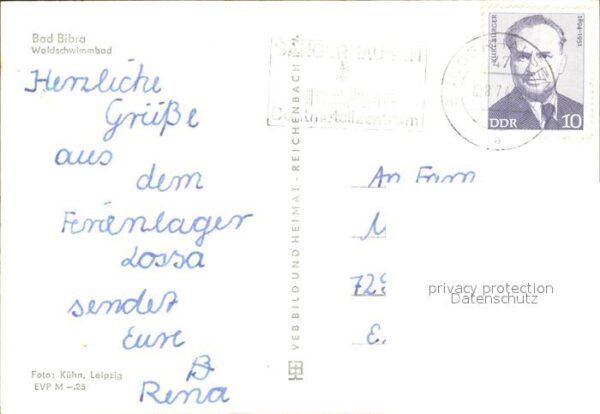 Bad Bibra
Waldschwimmbad
Herzliche
Grüße
aus
dem
Ferienlager
Lossa
sendet
Eure
Rena
Foto: Kühn, Leipzig
EVP M –,25
VEB BILD UND HEIMAT · REICHENBACH
Buntmetallzentrum
DDR 10
An Fam
privacy protection
Datenschutz